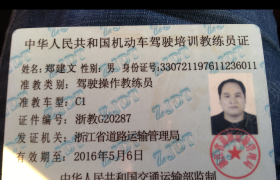 中华人民共和国机动车驾驶培训教练员证
姓名：郑建文 性别：男 身份证号：330721197611236011
准教类别：驾驶操作教练员
准教车型：C1
证件编号：浙教G20287
发证机关：浙江省道路运输管理局
有效期至：2016年5月6日
中华人民共和国交通运输部监制